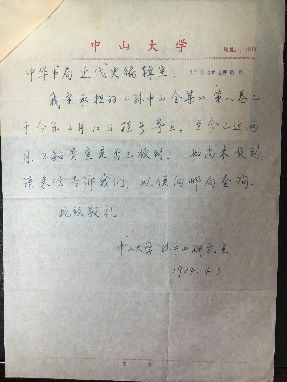 中山大学
中华书局近代史编辑室：
我室承担的《孙中山全集》第八卷已
于今年2月10日挂号寄出，至今已近两
月，不知贵室是否已收到。如尚未收到
请来信告诉我们，以便向邮局查询。
此致敬礼
中山大学孙中山研究室
1984.4.5